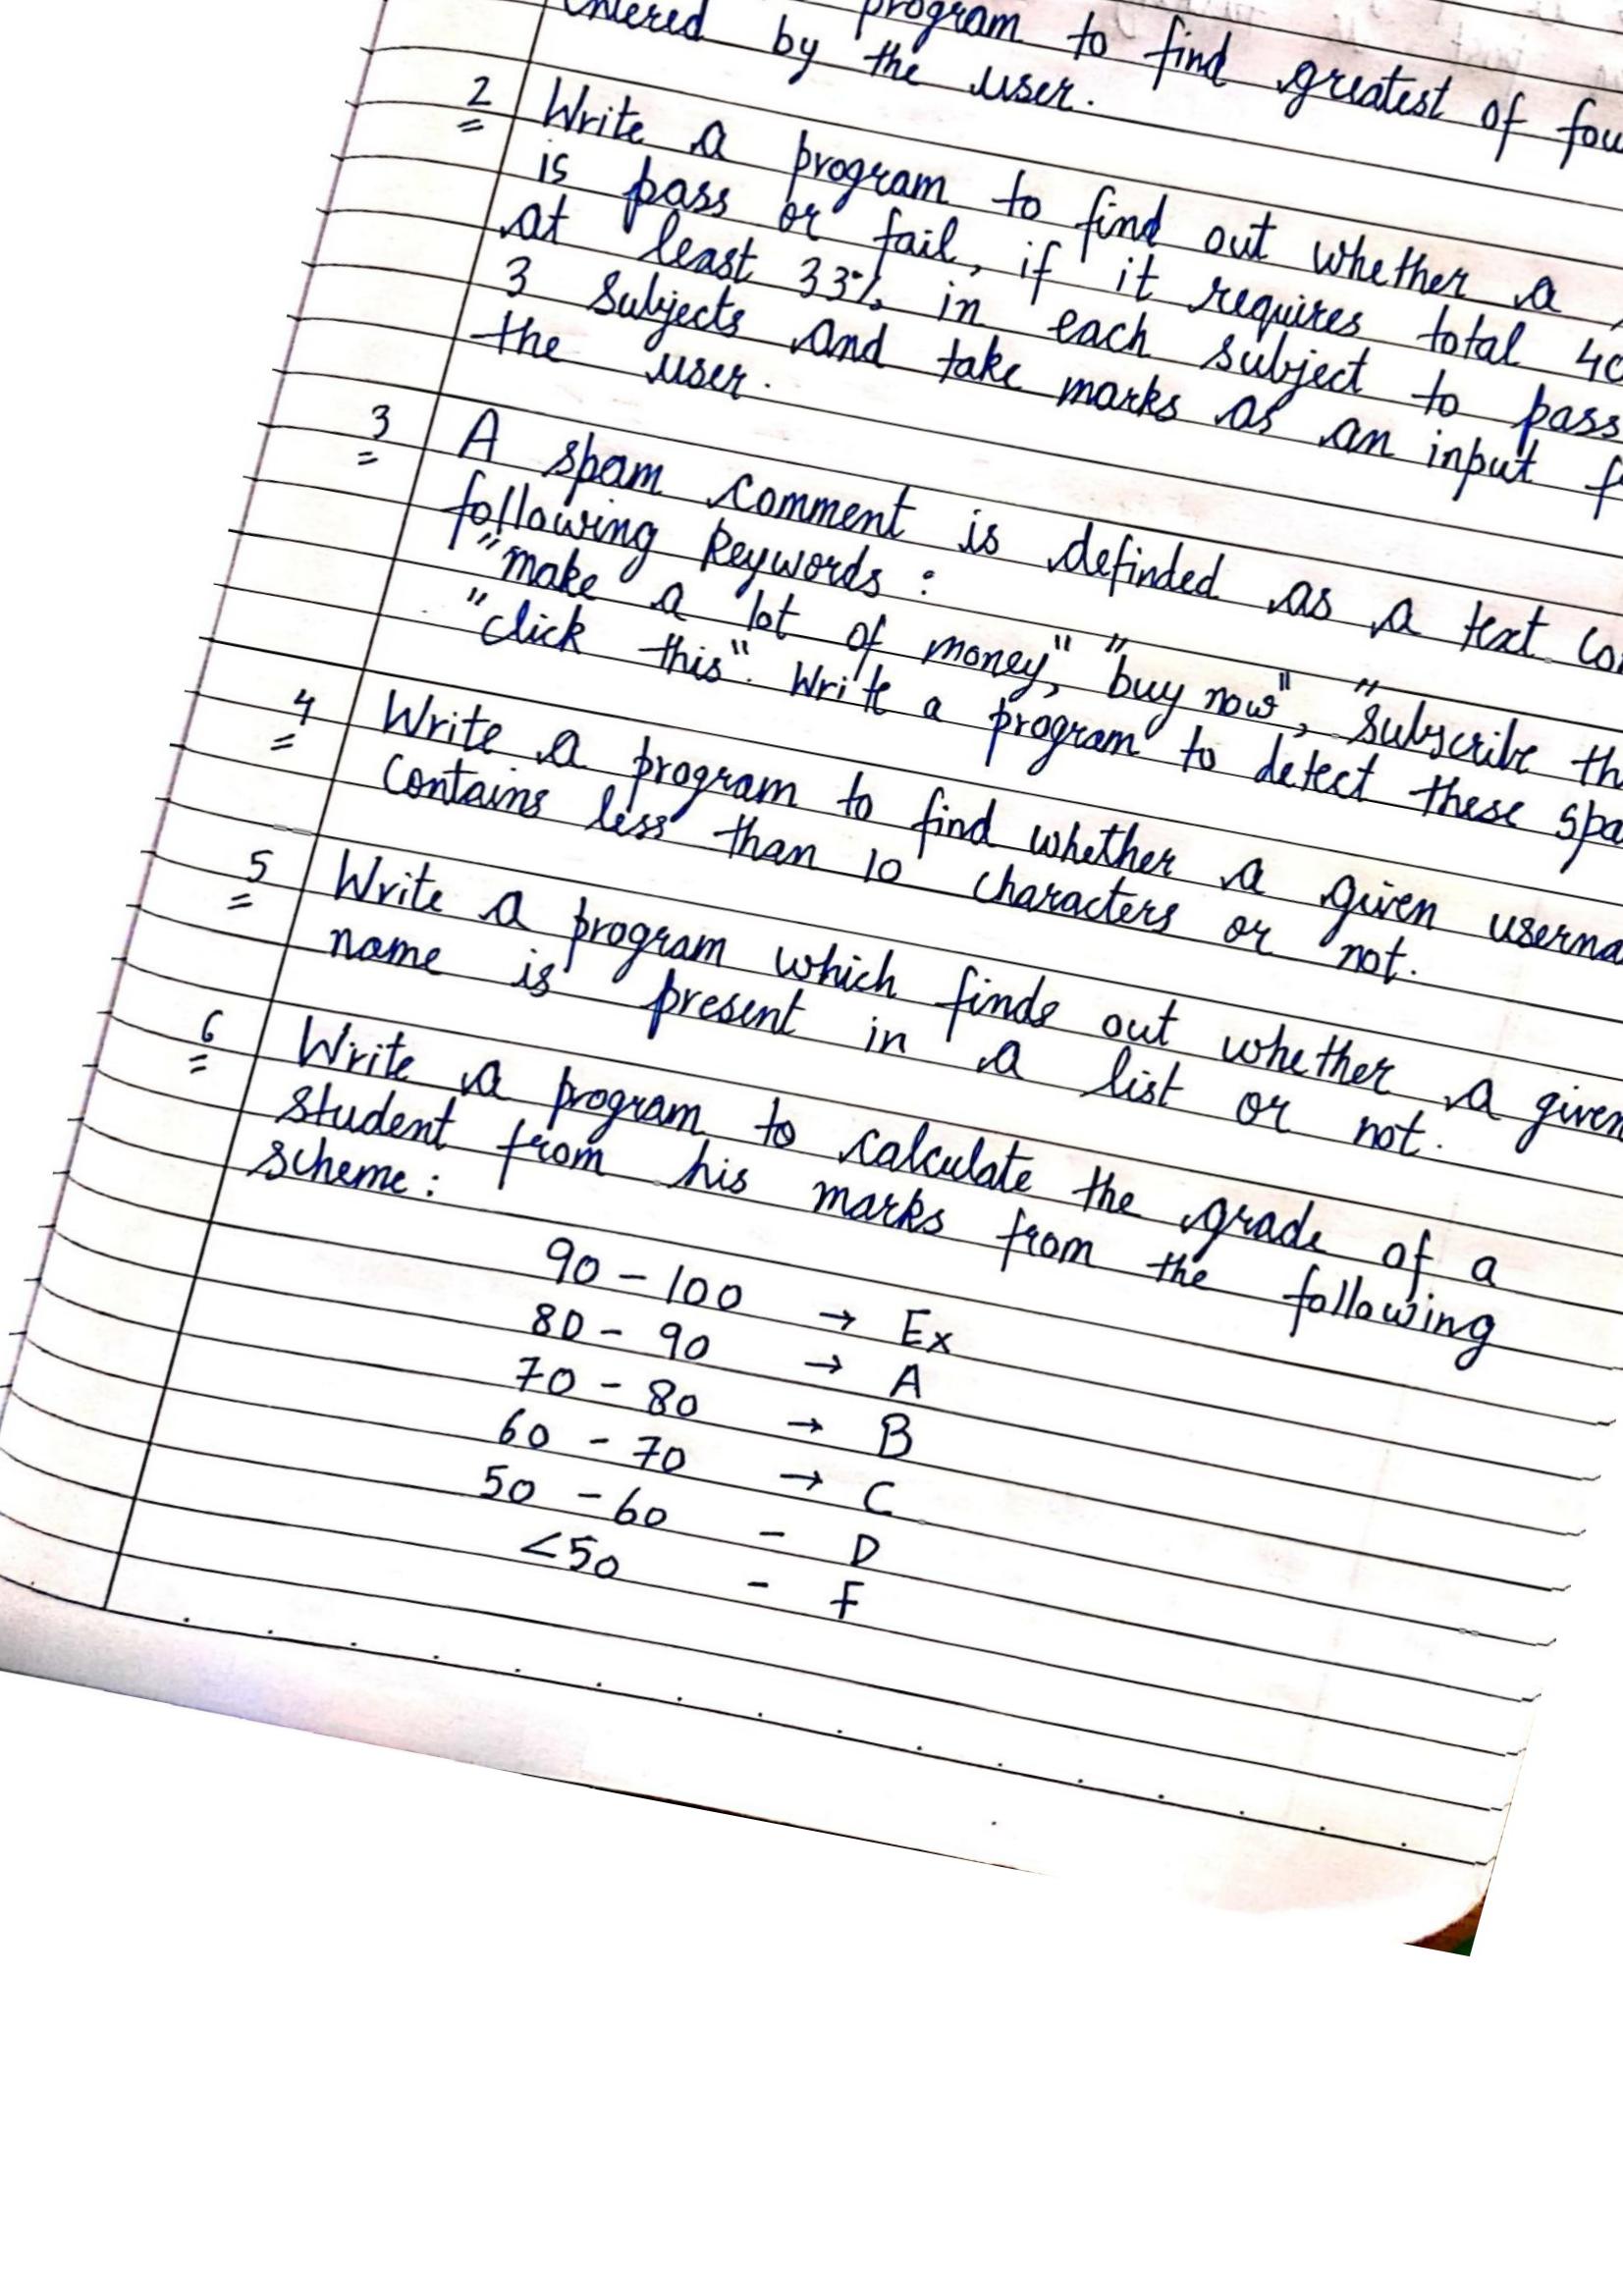 program to find greatest of fou
entered by the user.
2 Write a program to find out whether a
is pass or fail, if it requires total 40
at least 33% in each subject to pass
3 subjects and take marks as an input f
the user.
3 A spam comment is definded as a text con
following keywords :
"make a lot of money", "buy now", "subscribe th
"click this". Write a program to detect these spa
4 Write a program to find whether a given userna
contains less than 10 characters or not.
5 Write a program which finds out whether a given
name is present in a list or not.
6 Write a program to calculate the grade of a
student from his marks from the following
scheme :
90 - 100 → Ex
80 - 90 → A
70 - 80 → B
60 - 70 → C
50 - 60 - D
<50 - F